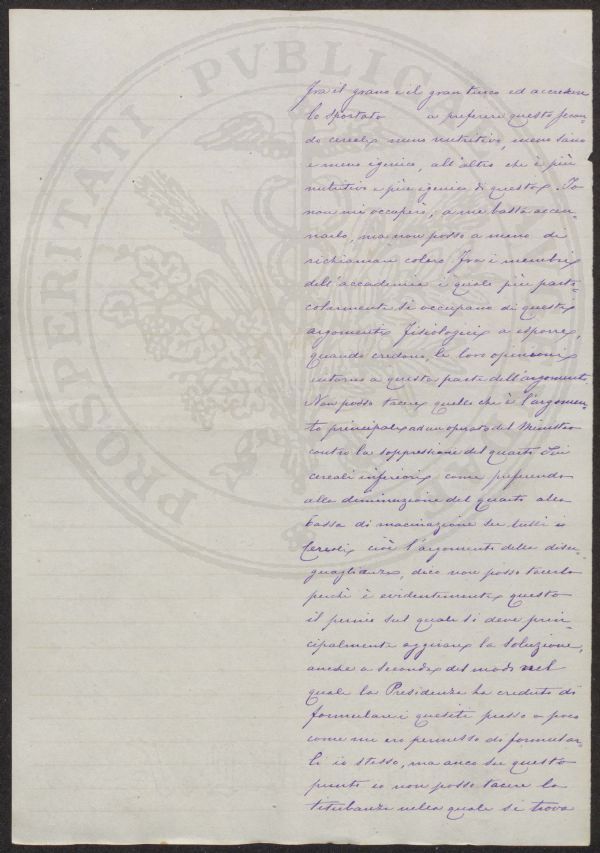 Fra il grano e il gran turco ed accrescere
lo spostato a preferire questo secon-
do cereale meno nutritivo, meno sano
e meno igenico, all'altro che è più
nutritivo e più igenico di questo. Io
non mi occuperò, a me basta accen-
narlo, ma non posso a meno di
richiamare coloro fra i membri
dell'accademia i quali più parti-
colarmente si occupano di questi
argomenti fisiologici a esporre,
quando credono, le loro opinioni
intorno a questa parte dell'argomento.
Non posso tacere quello che è l'argomen-
to principale del Ministro
contro la soppressione del quarto sui
cereali inferiori come preferendo
alla diminuzione del quarto alla
tassa di macinazione su tutti i
Cereali cioè l'argomento della disu-
guaglianza, dico non posso tacerlo
perché è evidentemente questo
il pernio sul quale si deve prin-
cipalmente aggirare la soluzione,
anche a seconda del modo nel
quale la Presidenza ha creduto di
formulare i quesiti presso a poco
come mi ero permesso di formular-
li io stesso, ma anco su questo
punto io non posso tacere la
titubanza nella quale si trova
PROSPERITATI PVBLICAE